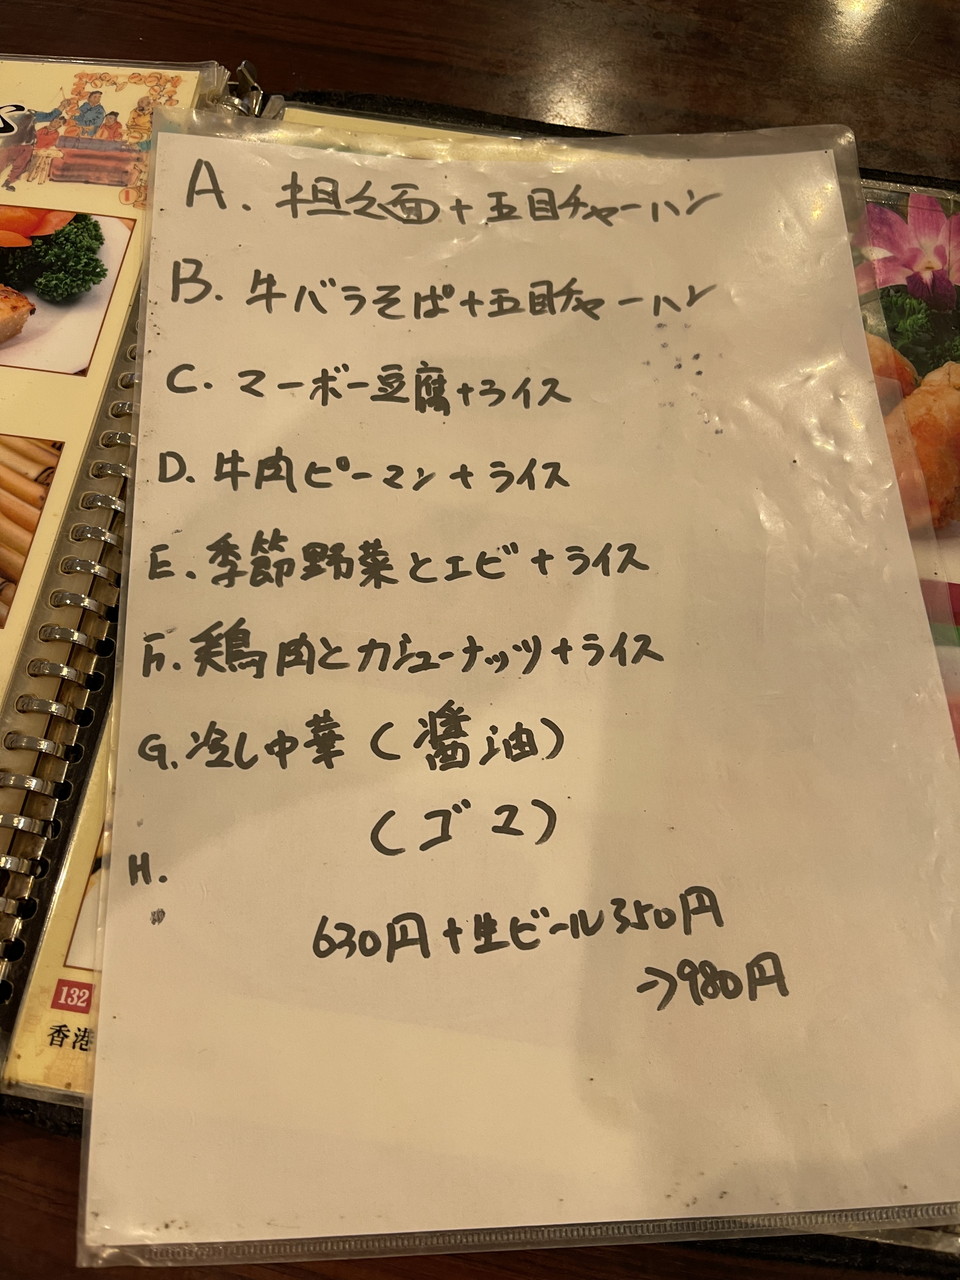 A. 担々面+五目チャーハン
B. 牛バラそば+五目チャーハン
C. マーボー豆腐+ライス
D. 牛肉ピーマン+ライス
E. 季節野菜とエビ+ライス
F. 鶏肉とカシューナッツ+ライス
G. 冷し中華(醤油)
(ゴマ)
H.
630円+生ビール350円
→980円
132
香港